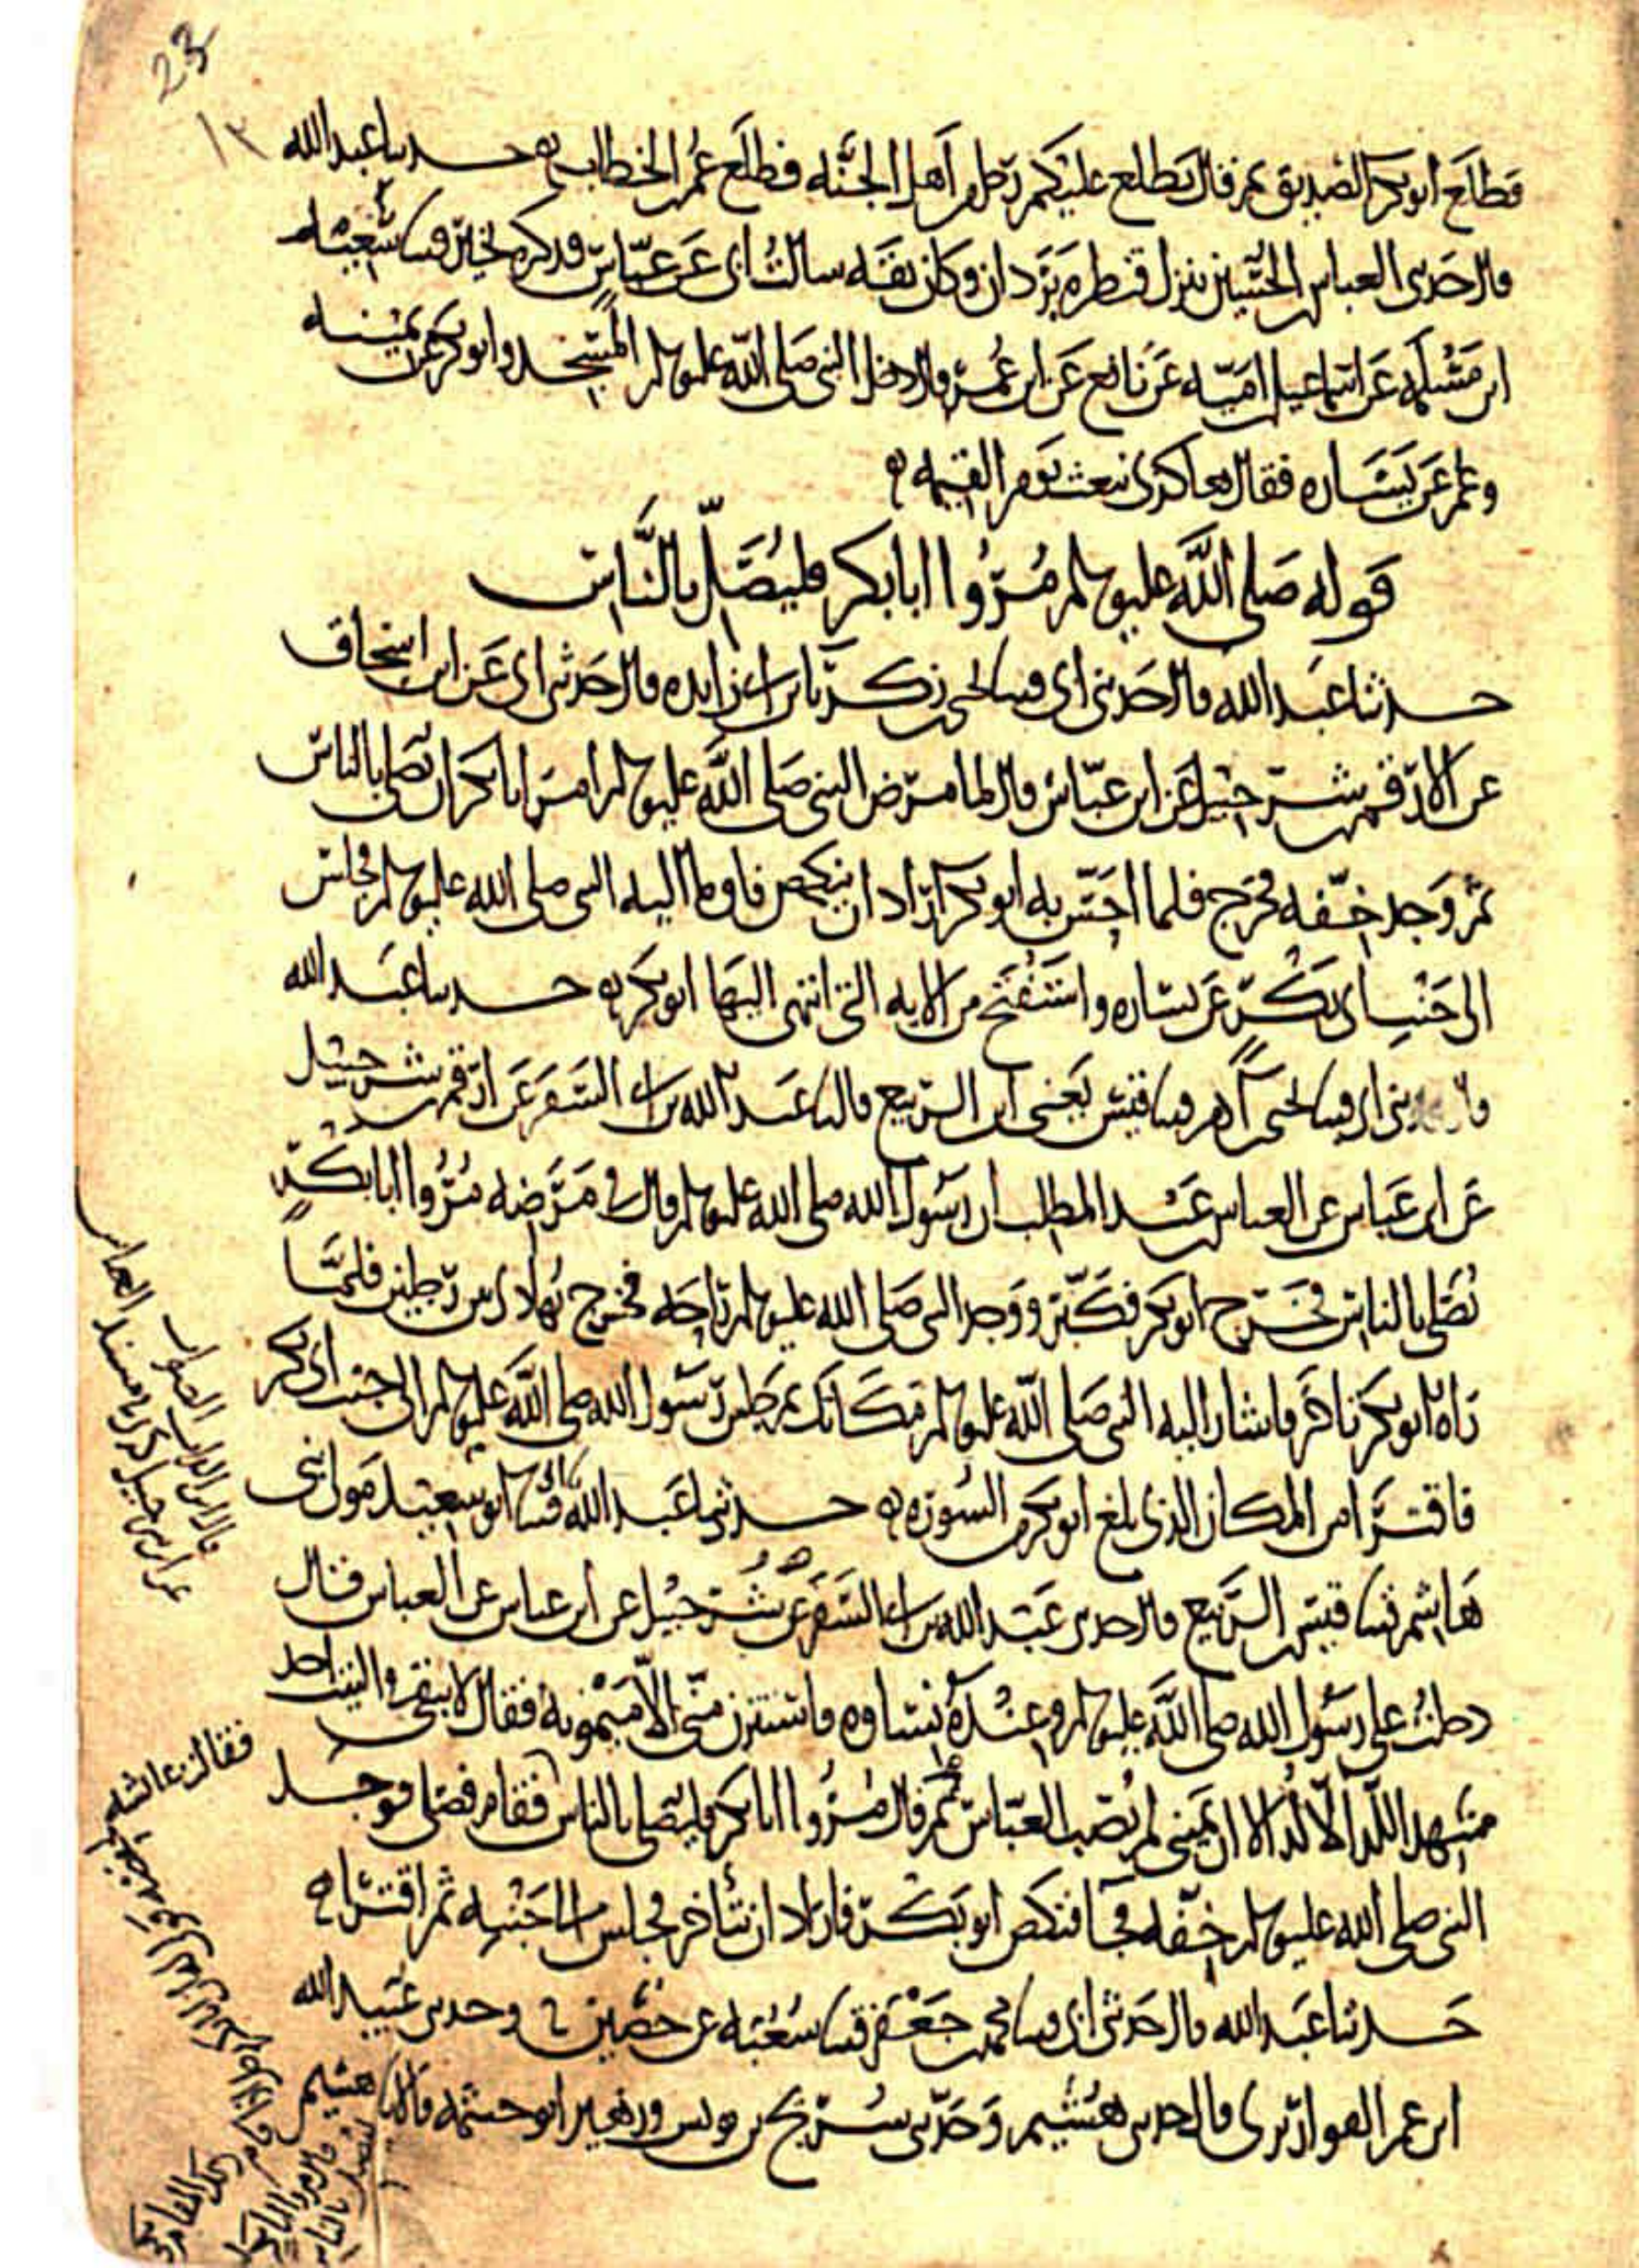 23
١٣
فطلع ابو بكر الصديق ثم قال يطلع عليكم رجل من اهل الجنه فطلع عمر بن الخطاب ه حدثنا عبد الله
قال حدثني العباس بن الحسين ينزل قنطره بردان وكان ثقه سالت ابي عن عباس فذكره بخير قثنا سعيد
ابن مسلمه عن اسماعيل بن اميه عن نافع عن ابن عمر قال دخل النبي صلى الله عليه وسلم المسجد وابو بكر عن يمينه
وعمر عن يساره فقال هاكذى نبعث يوم القيمه ه
قوله صلى الله عليه وسلم مروا ابا بكر فليصل بالناس
حدثنا عبد الله قال حدثني ابي قثنا يحيى بن زكريا بن ابي زايده قال حدثني ابي عن ابي اسحاق
عن الارقم بن شرحبيل عن ابن عباس قال لما مرض النبي صلى الله عليه وسلم امر ابا بكر ان يصلي بالناس
ثم وجد خفه فخرج فلما احس به ابو بكر اراد ان ينكص فاوما اليه النبي صلى الله عليه وسلم فجلس
الى جنب ابي بكر عن يساره واستفتح من الايه التي انتهى اليها ابو بكر ه حدثنا عبد الله
قال حدثني ابي قثنا يحيى بن ادم قثنا قيس يعني ابن الربيع قال ثنا عبد الله بن ابي السفر عن ارقم بن شرحبيل
عن ابن عباس عن العباس بن عبد المطلب ان رسول الله صلى الله عليه وسلم قال في مرضه مروا ابا بكر
يصلي بالناس فخرج ابو بكر فكبر ووجد النبي صلى الله عليه وسلم راحه فخرج يهادى بين رجلين فلما
راه ابو بكر تاخر فاشار اليه النبي صلى الله عليه وسلم مكانك ثم جلس رسول الله صلى الله عليه وسلم الى جنب ابي بكر
فاقترا من المكان الذي بلغ ابو بكر من السوره ه حدثنا عبد الله قثنا ابي قثنا ابو سعيد مولى بني
هاشم قثنا قيس بن الربيع قال حدثني عبد الله بن ابي السفر عن بن شرحبيل عن ابن عباس عن العباس قال
دخلت على رسول الله صلى الله عليه وسلم وعنده نساوه فاستترن مني الا ميمونه فقال لا يبقى في البيت احد
شهد اللد الا لد الا ان يميني لم تصب العباس ثم قال مروا ابا بكر فليصلي بالناس فقام فصلى فوجد
النبي صلى الله عليه وسلم خفه فجا فنكص ابو بكر فاراد ان يتاخر فجلس الى جنبه ثم اقترا ه
حدثنا عبد الله قال حدثني ابي قثنا محمد بن جعفر قثنا شعبه عن حصين وحدثني عبيد الله
ابن عمر القواريري قال حدثني هشيم وحدثني سريج بن يونس وزهير ابو خيثمه قالا ثنا هشيم
فقالت عائشه